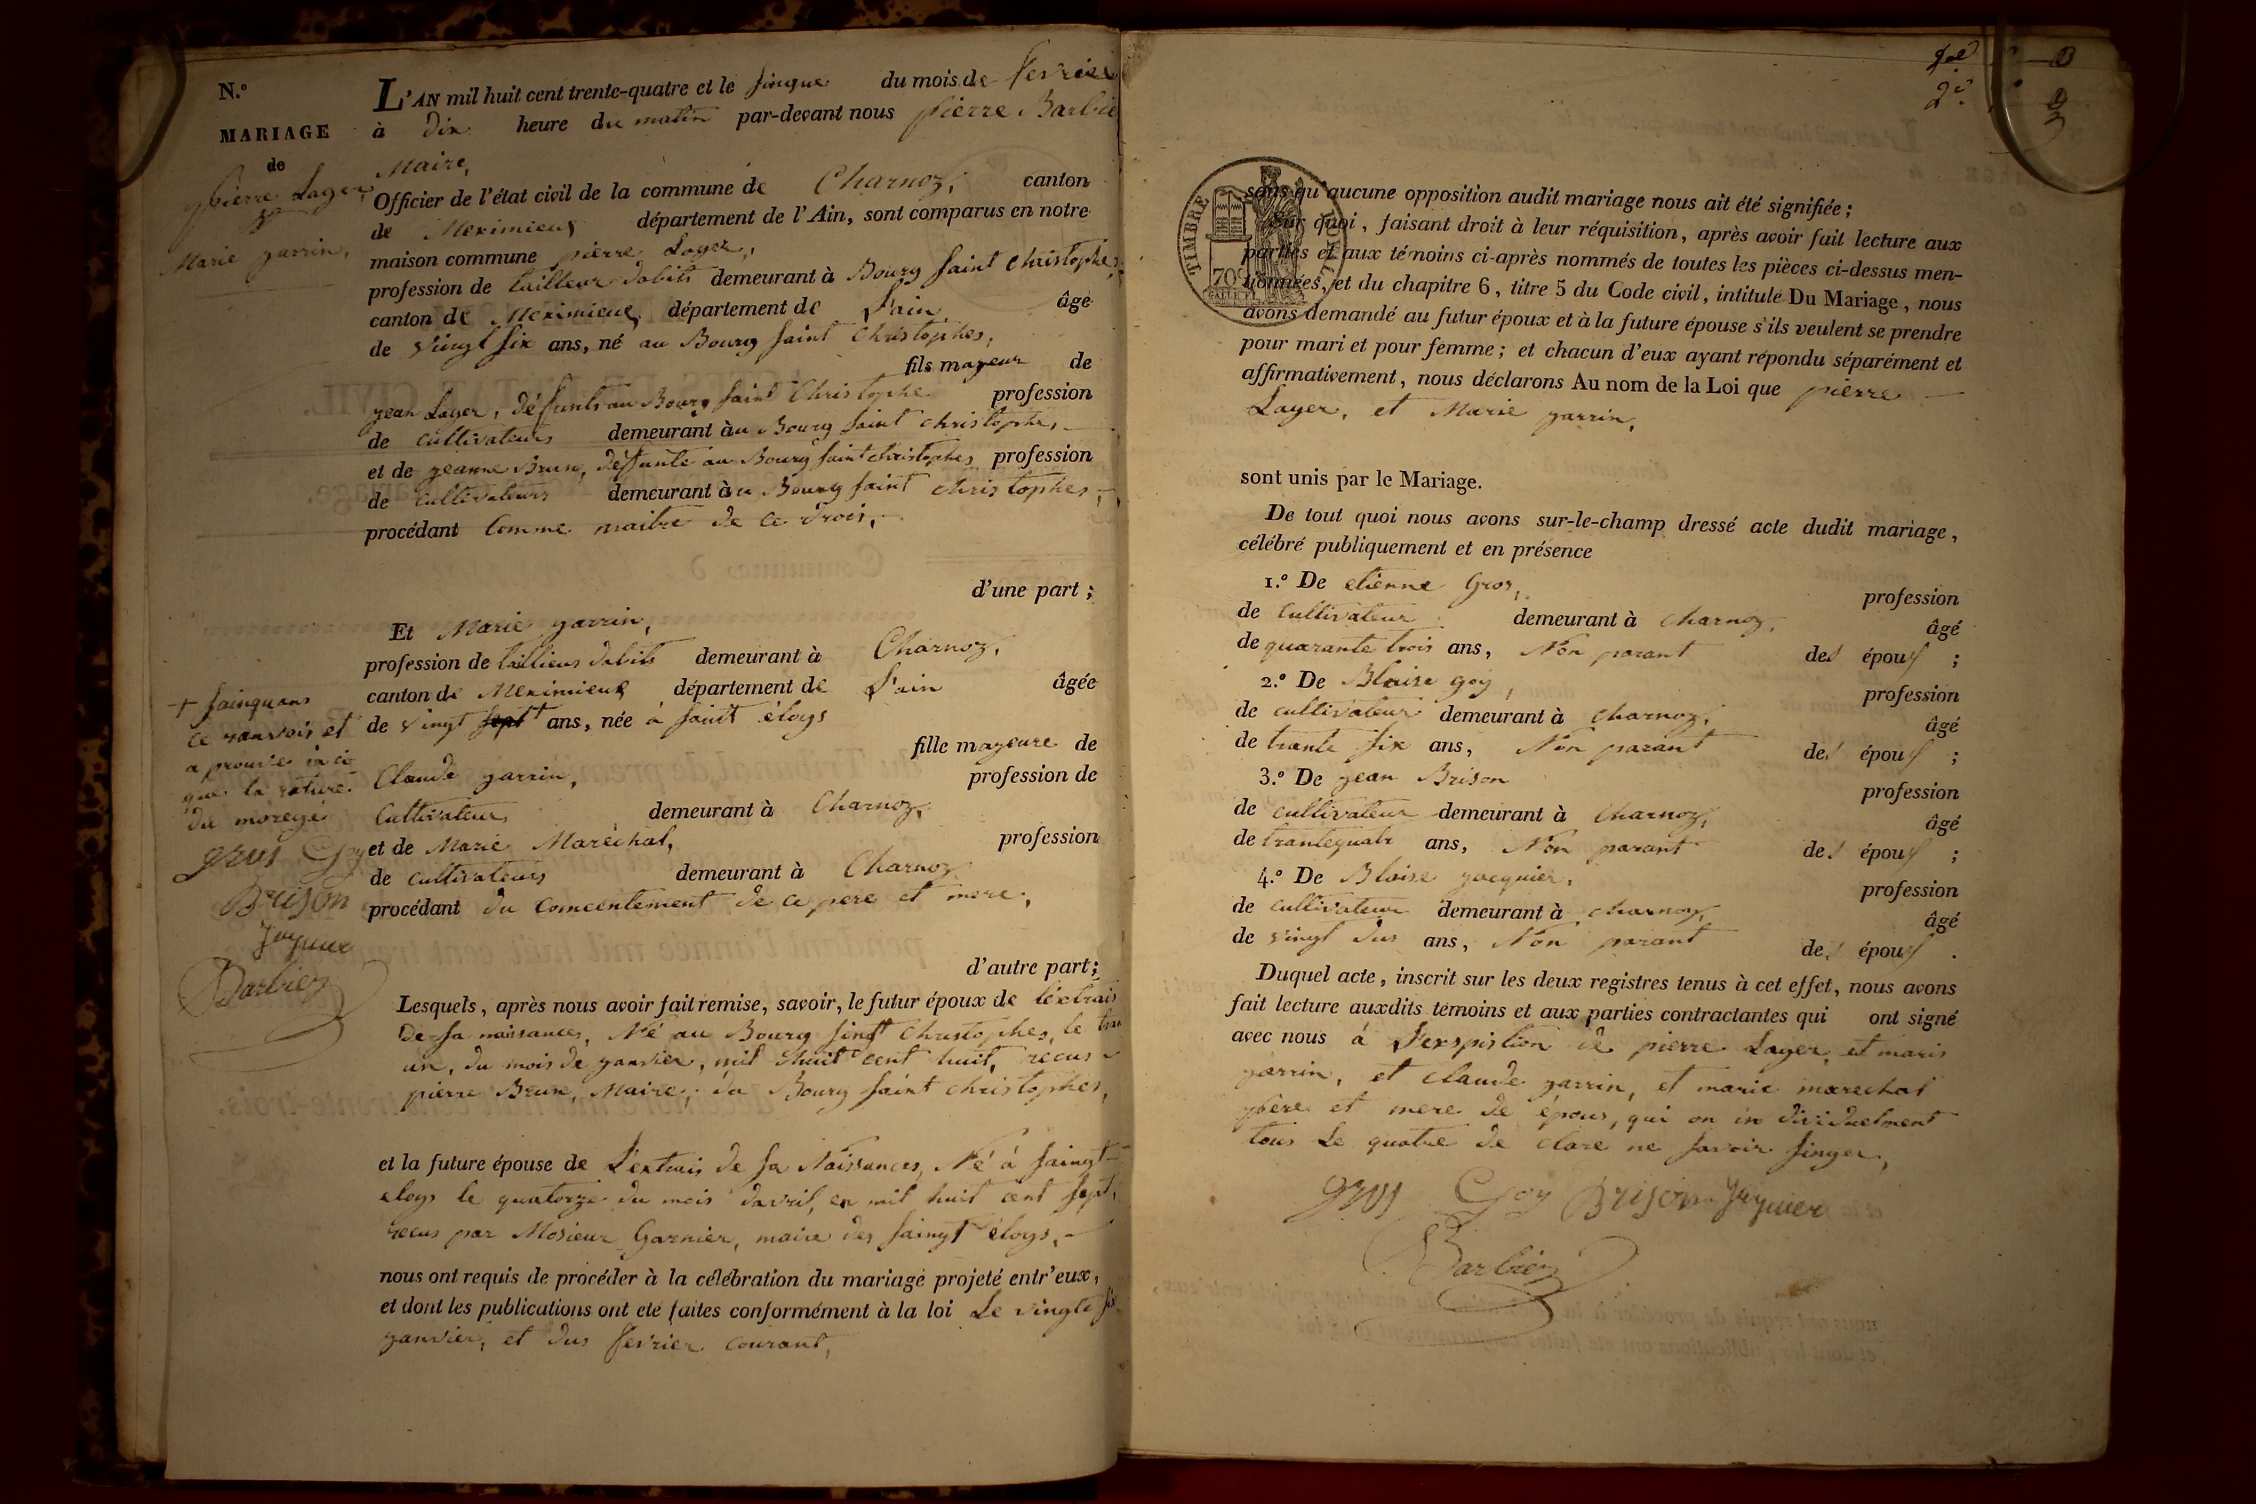 N.o
MARIAGE
de
pierre Layer
et
Marie garrin,
L'AN mil huit cent trente-quatre et le sinque du mois de fevrier
à dix heure du matin par-devant nous pierre Barbie
Maire,
Officier de l'état civil de la commune de Charnoz, canton
de Meximieux département de l'Ain, sont comparus en notre
maison commune pierre Layer,
profession de tailleur dabits demeurant à Bourg saint christophe,
canton de Meximieux département de l'ain âgé
de vingt six ans, né au Bourg saint Christophes,
fils mayeur de
jean Layer, défunts au Bourg saint Christophe profession
de cultivateurs demeurant àu Bourg saint christophes,
et de jeanne Brun, deffunte au Bourg saint christophes profession
de cultivateurs demeurant àu Bourg saint christophes,
procédant Comme maitre de ce drois,
d'une part ;
Et Marie garrin,
profession de taillieus dabits demeurant à Charnoz,
canton de Meximieux département de l'ain âgée
de vingt sept ans, née à saint éloys
fille mayeure de
Claude garrin, profession de
Cultivateur demeurant à Charnoz,
et de Marie Maréchal, profession
de cultivateurs demeurant à Charnoz
procédant du Comcentement de ce pere et mere,
d'autre part ;
+ sainquans
ce ranvois et
a prouvé in ci
que la rature
du
grus Goy
Brison
Jaquier
Barbier
Lesquels, après nous avoir fait remise, savoir, le futur époux de léxtrais
de sa naissances, Né au Bourg sinct Christophes, le tran
un, du mois de janvier, mil huit cent huit, recus
pierre Brun, Maire, du Bourg saint christophes,
et la future épouse de L'extrais de sa Naissances, Né à saingt
eloys le quatorze du mois davril, en mil huit cent sept,
recus par Mosieur Garnier, maire des saingt éloys,
nous ont requis de procéder à la célébration du mariage projeté entr'eux,
et dont les publications ont été faites conformément à la loi Le vingte six
janvier, et dus fevrier courant,
2e
TIMBRE ROYAL
70c
sans qu'aucune opposition audit mariage nous ait été signifiée ;
Sur quoi, faisant droit à leur réquisition, après avoir fait lecture aux
parties et aux témoins ci-après nommés de toutes les pièces ci-dessus men-
tionnées, et du chapitre 6, titre 5 du Code civil, intitulé Du Mariage, nous
avons demandé au futur époux et à la future épouse s'ils veulent se prendre
pour mari et pour femme ; et chacun d'eux ayant répondu séparément et
affirmativement, nous déclarons Au nom de la Loi que pierre
Layer, et Marie garrin,
sont unis par le Mariage.
De tout quoi nous avons sur-le-champ dressé acte dudit mariage,
célébré publiquement et en présence
1.o De etienne Gros, profession
de Cultivateur demeurant à charnoz, âgé
de quarante trois ans, Non parant des épous ;
2.o De Blaise goy, profession
de cultivateur demeurant à charnoz, âgé
de trante six ans, Non parant des épous ;
3.o De jean Brison profession
de cultivateur demeurant à Charnoz, âgé
de trantequatr ans, Non parant des épous ;
4.o De Blaise jacquier, profession
de cultivateur demeurant à charnoz, âgé
de vingt dus ans, Non parant des épous .
Duquel acte, inscrit sur les deux registres tenus à cet effet, nous avons
fait lecture auxdits témoins et aux parties contractantes qui ont signé
avec nous à l'exspistion de pierre Layer, et maris
garrin, et claude garrin, et marie marechal
père et mere de épous, qui on in dividuelment
tous Le quatre de clare ne savoir singer,
grus Goy Brison Jaquier
Barbier